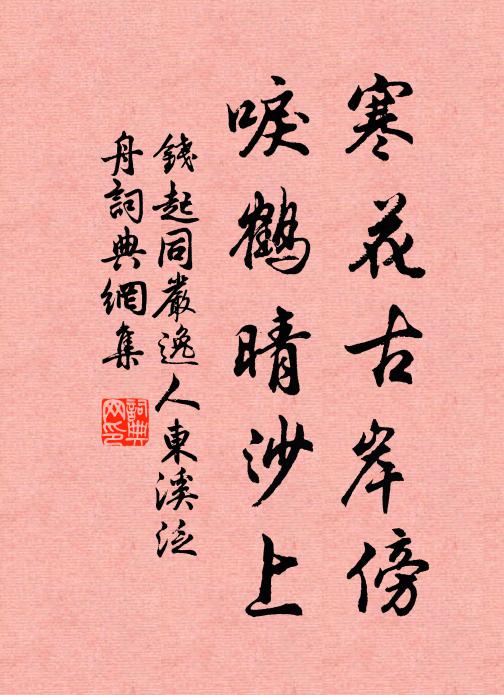 寒花古岸傍
唳鶴晴沙上
錢起同嚴逸人東溪泛
舟詞典網集
詞典
网印